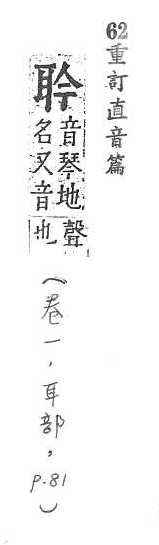 62重訂直音篇
聆音琴地名又音聲也
(卷一，耳部，P.81)